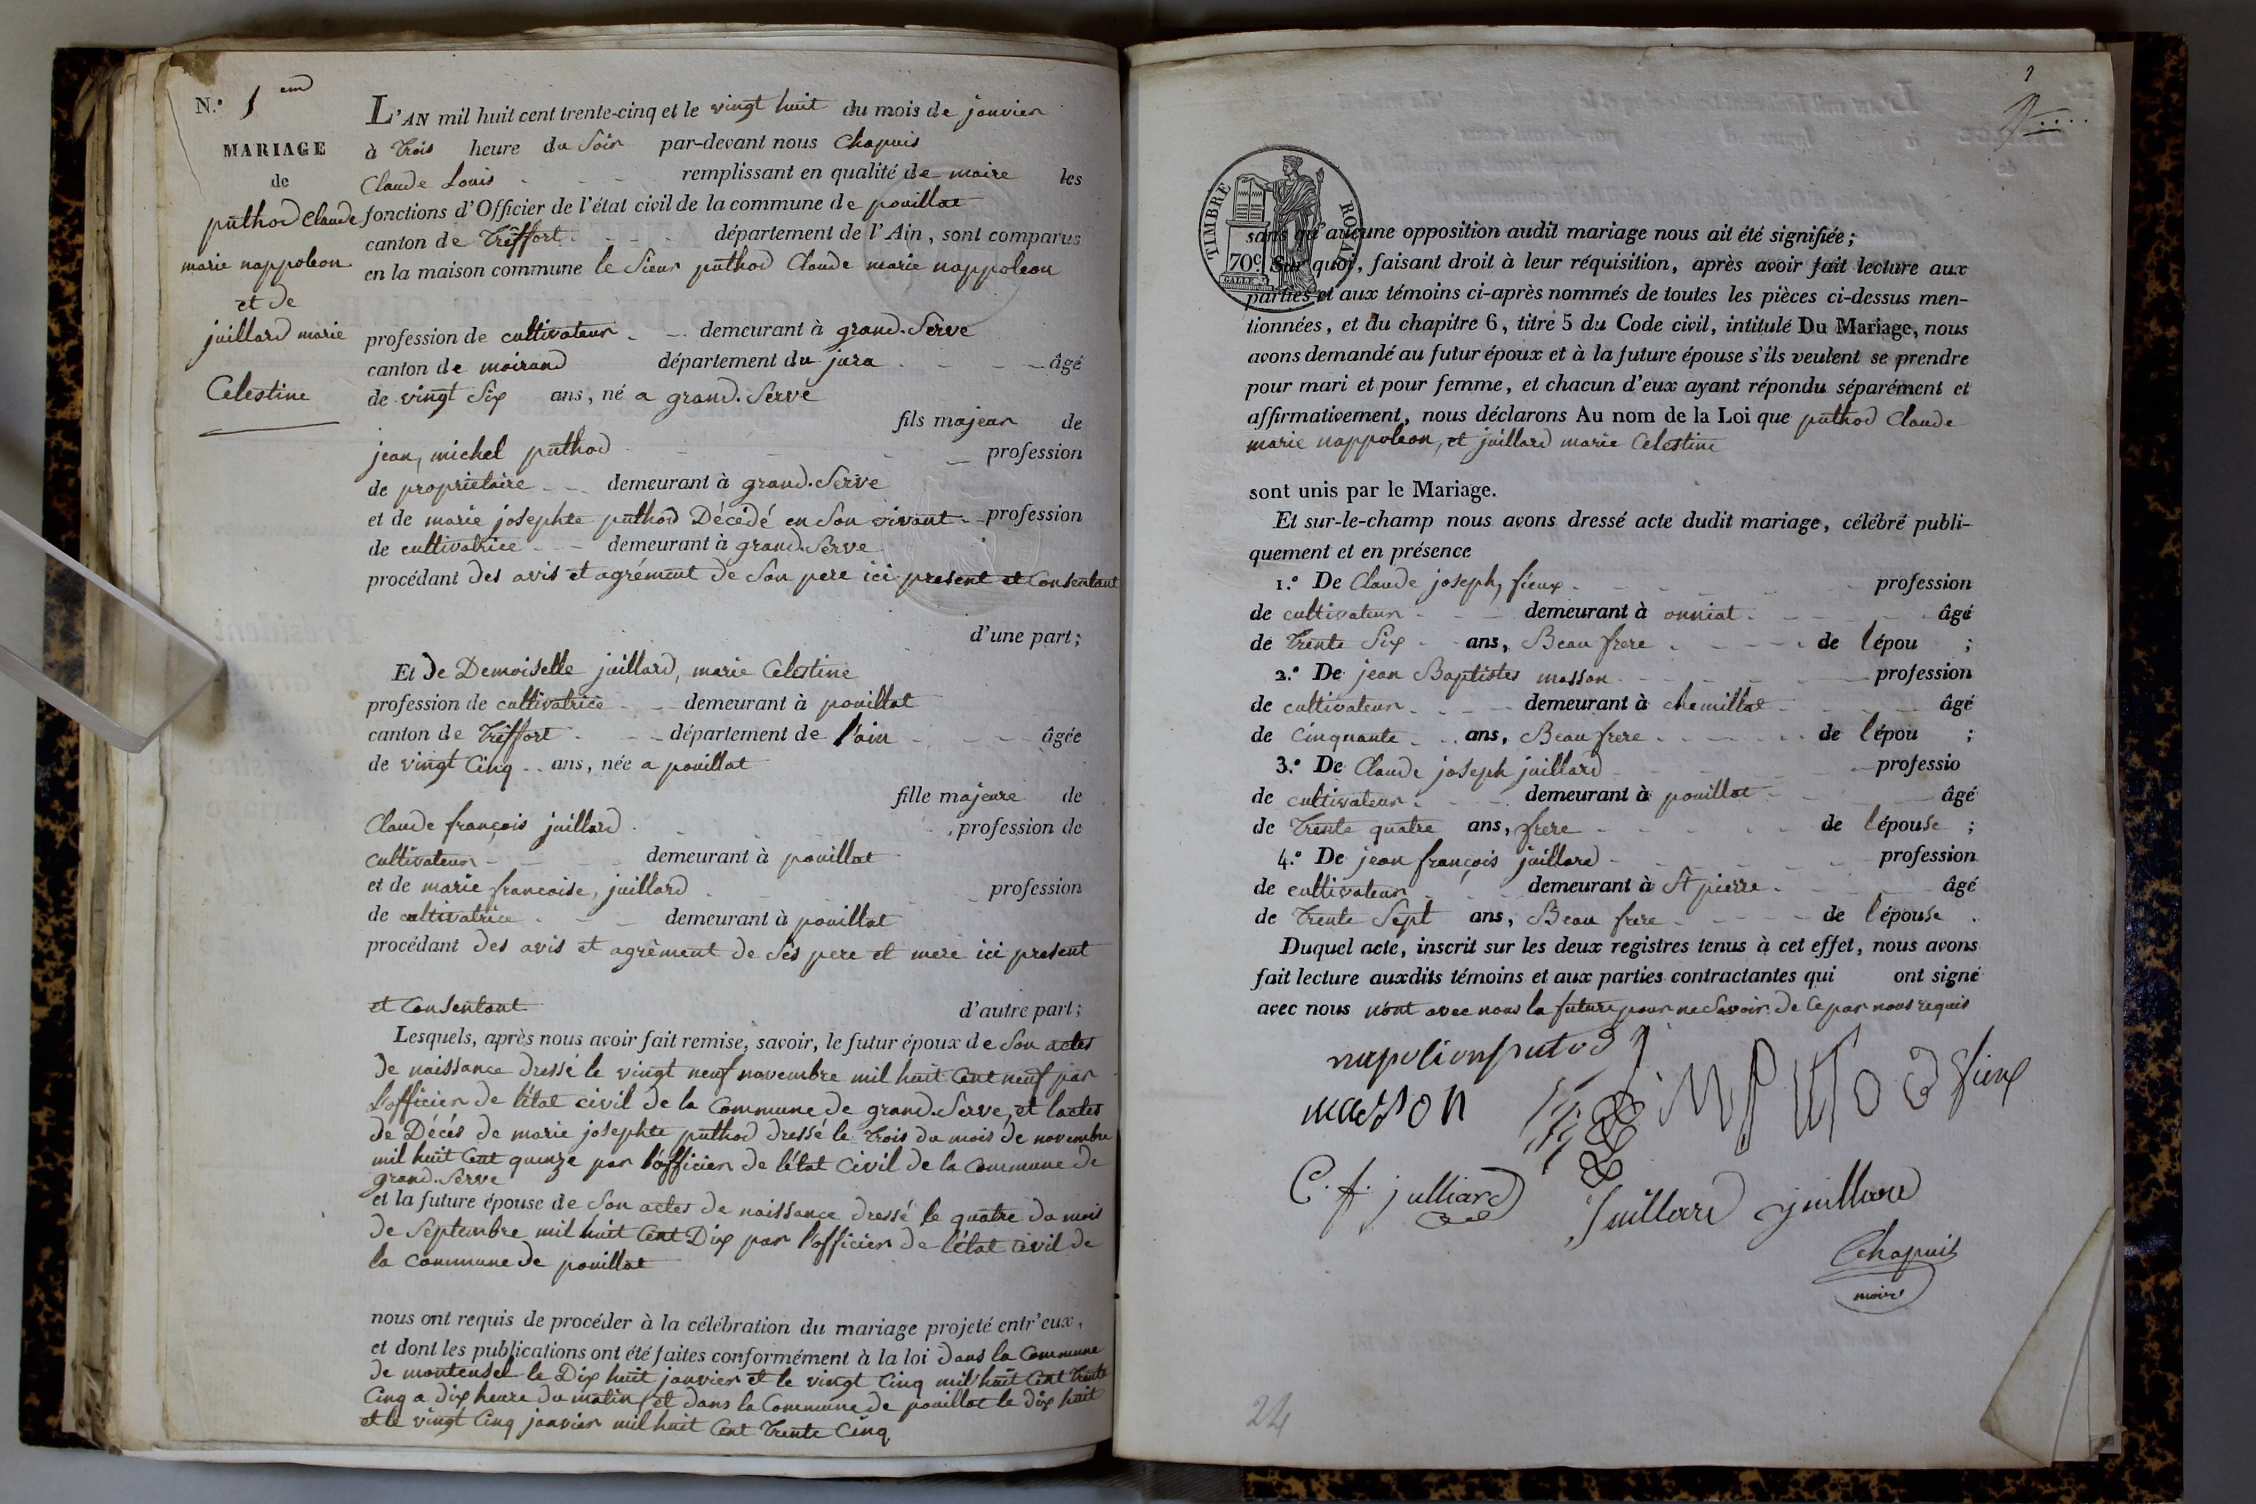 N.° 1 em
MARIAGE
de
puthod Claude
marie nappoleon
et de
juillard marie
Celestine
L'AN mil huit cent trente-cinq et le vingt huit du mois de janvier
à Trois heure du Soir par-devant nous Chapuis
Claude Louis remplissant en qualité de maire les
fonctions d'Officier de l'état civil de la commune de pouillat
canton de Treffort département de l'Ain, sont comparus
en la maison commune le Sieur puthod Claude marie nappoleon
profession de cultivateur demeurant à grand. Serve
canton de moirand département du jura âgé
de vingt Six ans, né a grand. Serve
fils majeur de
jean, michel puthod profession
de propriétaire demeurant à grand. Serve
et de marie josephte puthod Décédé en Son vivant profession
de cultivatrice demeurant à grand. Serve
procédant des avis et agrément de Son pere ici present et Consentant
d'une part;
Et de Demoiselle juillard, marie Celestine
profession de cultivatrice demeurant à pouillat
canton de Treffort département de l'ain âgée
de vingt Cinq ans, née a pouillat
fille majeure de
Claude françois juillard profession de
cultivateur demeurant à pouillat
et de marie francoise, juillard profession
de cultivatrice demeurant à pouillat
procédant des avis et agrément de Ses pere et mere ici present
et Consentant d'autre part;
Lesquels, après nous avoir fait remise, savoir, le futur époux de Son actes
de naissance dressé le vingt neuf novembre mil huit Cent neuf par
l'officier de l'état civil de la Commune de grand. Serve, et lactes
de Décés de marie josephte puthod dressé le Trois du mois de novembre
mil huit Cent quinze par l'officier de l'état Civil de la Commune de
grand. Serve
et la future épouse de Son actes de naissance dressé le quatre du mois
de Septembre mil huit Cent Dix par l'officier de l'état Civil de
la Commune de pouillat
nous ont requis de procéder à la célébration du mariage projeté entr'eux,
et dont les publications ont été faites conformément à la loi dans la Commune
de montensel le Dix huit janvier et le vingt Cinq mil huit Cent Trente
Cinq a dix heure du matin, et dans la Commune de pouillat le dix huit
et le vingt Cinq janvier mil huit Cent Trente Cinq
TIMBRE ROYAL
70c.
sans qu'aucune opposition audit mariage nous ait été signifiée;
Sur quoi, faisant droit à leur réquisition, après avoir fait lecture aux
parties et aux témoins ci-après nommés de toutes les pièces ci-dessus men-
tionnées, et du chapitre 6, titre 5 du Code civil, intitulé Du Mariage, nous
avons demandé au futur époux et à la future épouse s'ils veulent se prendre
pour mari et pour femme, et chacun d'eux ayant répondu séparément et
affirmativement, nous déclarons Au nom de la Loi que puthod Claude
marie nappoleon, et juillard marie Celestine
sont unis par le Mariage.
Et sur-le-champ nous avons dressé acte dudit mariage, célébré publi-
quement et en présence
1.° De Claude joseph, fieux profession
de cultivateur demeurant à onniat âgé
de Trente Six ans, Beau frere de lépou ;
2.° De jean Baptistes masson profession
de cultivateur demeurant à chemillat âgé
de Cinquante ans, Beau frere de lépou ;
3.° De Claude joseph juillard professio
de cultivateur demeurant à pouillat âgé
de Trente quatre ans, frere de lépouse ;
4.° De jean françois juillard profession
de cultivateur demeurant à St pierre âgé
de Trente Sept ans, Beau frere de lépouse .
Duquel acte, inscrit sur les deux registres tenus à cet effet, nous avons
fait lecture auxdits témoins et aux parties contractantes qui ont signé
avec nous non avec nous la future pour ne Savoir de Ce par nous requis
napolionputod fieux
masson
C. f. julliard juillard juillard
Chapuis
maire
24